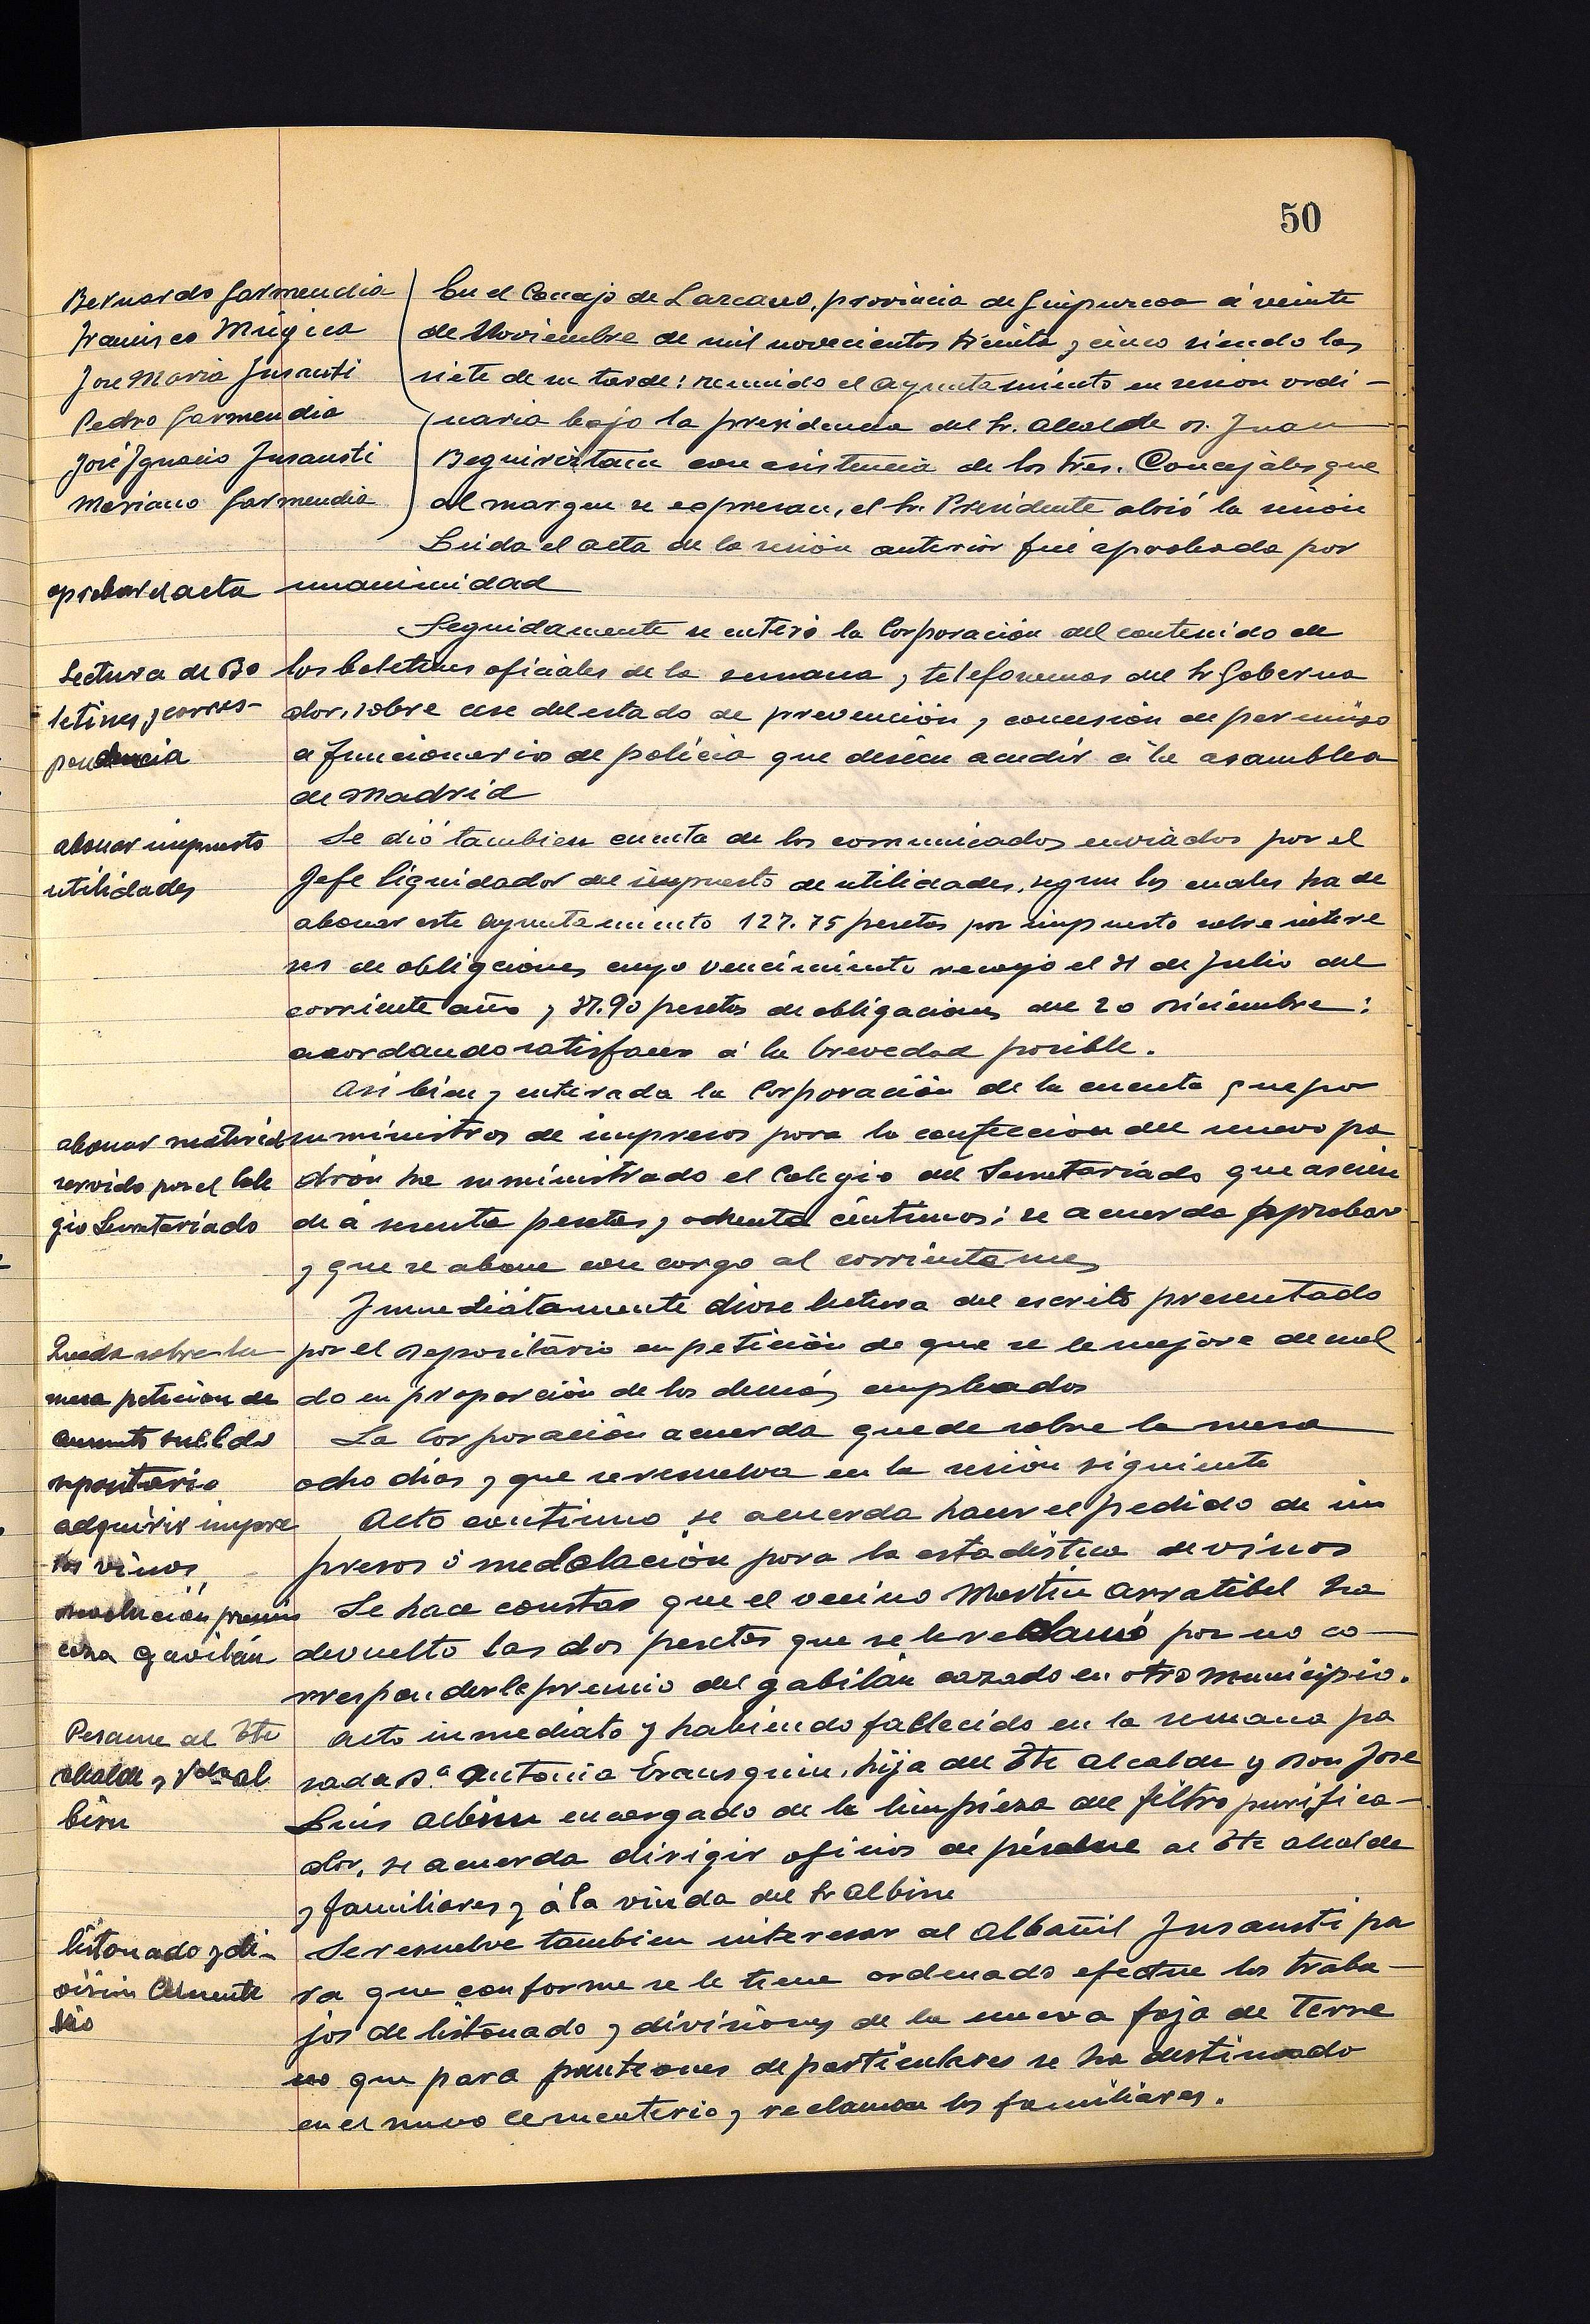 50
Bernardo Garmendia
Francisco Múgica
Jose Maria Insausti
Pedro Garmendia
José Ignacio Insausti
Mariano Garmendia
En el Concejo de Lazcano, provincia de Guipuzcoa á veinte
de Noviembre de mil novecientos treinta y cinco siendo las
siete de su tarde: reunido el Ayuntamiento en sesion ordi-
naria bajo la presidencia del Sr. Alcalde D. Juan
Beguiristain con asistencia de los Sres. Concejales que
al margen se expresan, el Sr. Presidente abrió la sesión
Leida el acta de la sesión anterior fué aprobada por
aprobar el acta
unanimidad
Seguidamente se enteró la Corporación del contenido de
Lectura de Bo
letines y corres-
pondencia
los boletines oficiales de la semana y telefonemas del Sr Goberna
dor, sobre cese del estado de prevención y concesión de permiso
a funcionarios de policia que deseen acudir a la asamblea
de Madrid
abonar impuesto
utilidades
Se dió tambien cuenta de los comunicados enviados por el
Jefe liquidador del impuesto de utilidades, segun los cuales ha de
abonar este Ayuntamiento 127.75 pesetas por impuesto sobre intere
ses de obligciones cuyo vencimiento recayó el 31 de Julio del
corriente año y 37.90 pesetas de obligaciones del 20 Diciembre:
acordando satisfacer á la brevedad posible.
Asi bien y enterada la Corporación de la cuenta que por
abonar material
servido por el Cole
gio Secretariado
suministros de impresos para la confeccion del nuevo pa
drón ha suministrado el Colegio del Secretariado que ascien
de á sesenta pesetas y ochenta céntimos: se acuerda aprobar
y que se abone con cargo al corriente mes
Inmediatamente diose lectura del escrito presentado
Queda sobre la
mesa peticion de
aumento sueldo
depositario
por el Depositario en petición de que se le mejore de suel
do en proporción de los demás empleados
La Corporación acuerda quede sobre la mesa
ocho dias y que se resuelva en la sesión siguiente
adquirir impre
sos vinos
Acto continuo se acuerda hacer el pedido de im
presos ó medolación para la estadistica de vinos
devolución premio
caza gavilán
Se hace constar que el vecino Martin Arratibel ha
devuelto las dos pesetas que se le reclamó por no co-
rresponderle premio del gabilán cazado en otro municipio.
Pesame al Tte
alcalde y Vda al
bisu
Acto inmediato y habiendo fallecido en la semana pa
sada D.ª Antonia Erausquin, hija del Tte alcalde y Don Jose
Luis Albisu encargado de la limpieza del filtro purifica-
dor, se acuerda dirigir oficios de pésame al Tte alcalde
y familiares y á la viuda del Sr Albisu
listonado y di-
visión Cemente
rio
Se resuelve tambien interesar al Albañil Insausti pa
ra que conforme se le tiene ordenado efectue los traba-
jos de listonado y divisiones de la nueva faja de terre
no que para panteones de particulares se ha destinado
en el nuevo cementerio y reclaman los familiares.